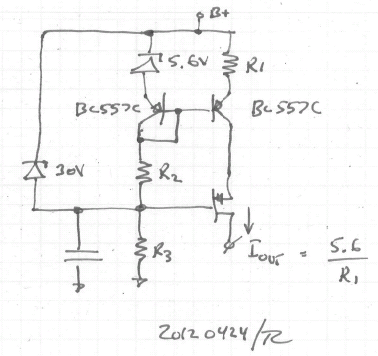 B+
5.6V
R1
BC557C
BC557C
30V
R2
R3
Iout = 5.6 / R1
20120424/R